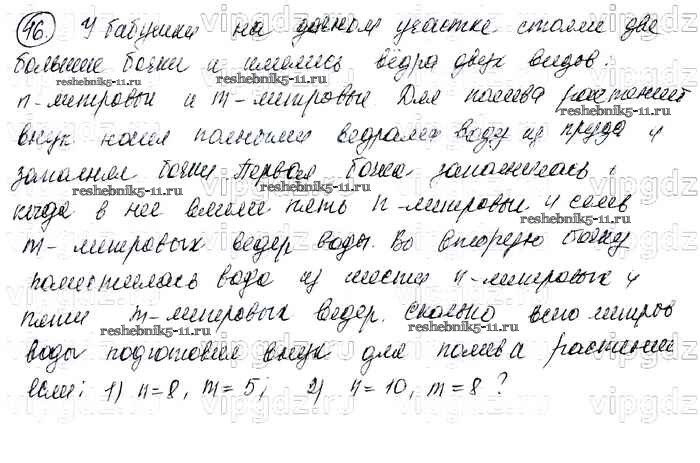 96. У бабушки на дачном участке стояли две
большие бочки и имелись вёдра двух видов:
n-литровые и m-литровые Для полива растений
внук носил полными ведрами воду из пруда и
заполнял бочки. Первая бочка заполнилась,
когда в нее влили пять n-литровых и семь
m-литровых ведер воды. Во вторую бочку
поместилась вода из шести n-литровых и
пяти m-литровых ведер. Сколько всего литров
воды подготовил внук для полива растений
если: 1) n=8, m=5; 2) n=10, m=8?
reshebnik5-11.ru
reshebnik5-11.ru
reshebnik5-11.ru
reshebnik5-11.ru
reshebnik5-11.ru
reshebnik5-11.ru
vipgdz.ru